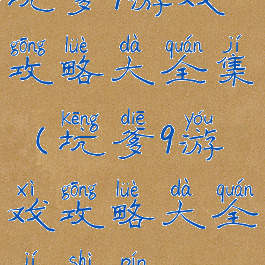 gōng lüè dà quán jí
攻略大全集
kēng diē yóu
(坑爹9游
xì gōng lüè dà quán
戏攻略大全
jí shì pín